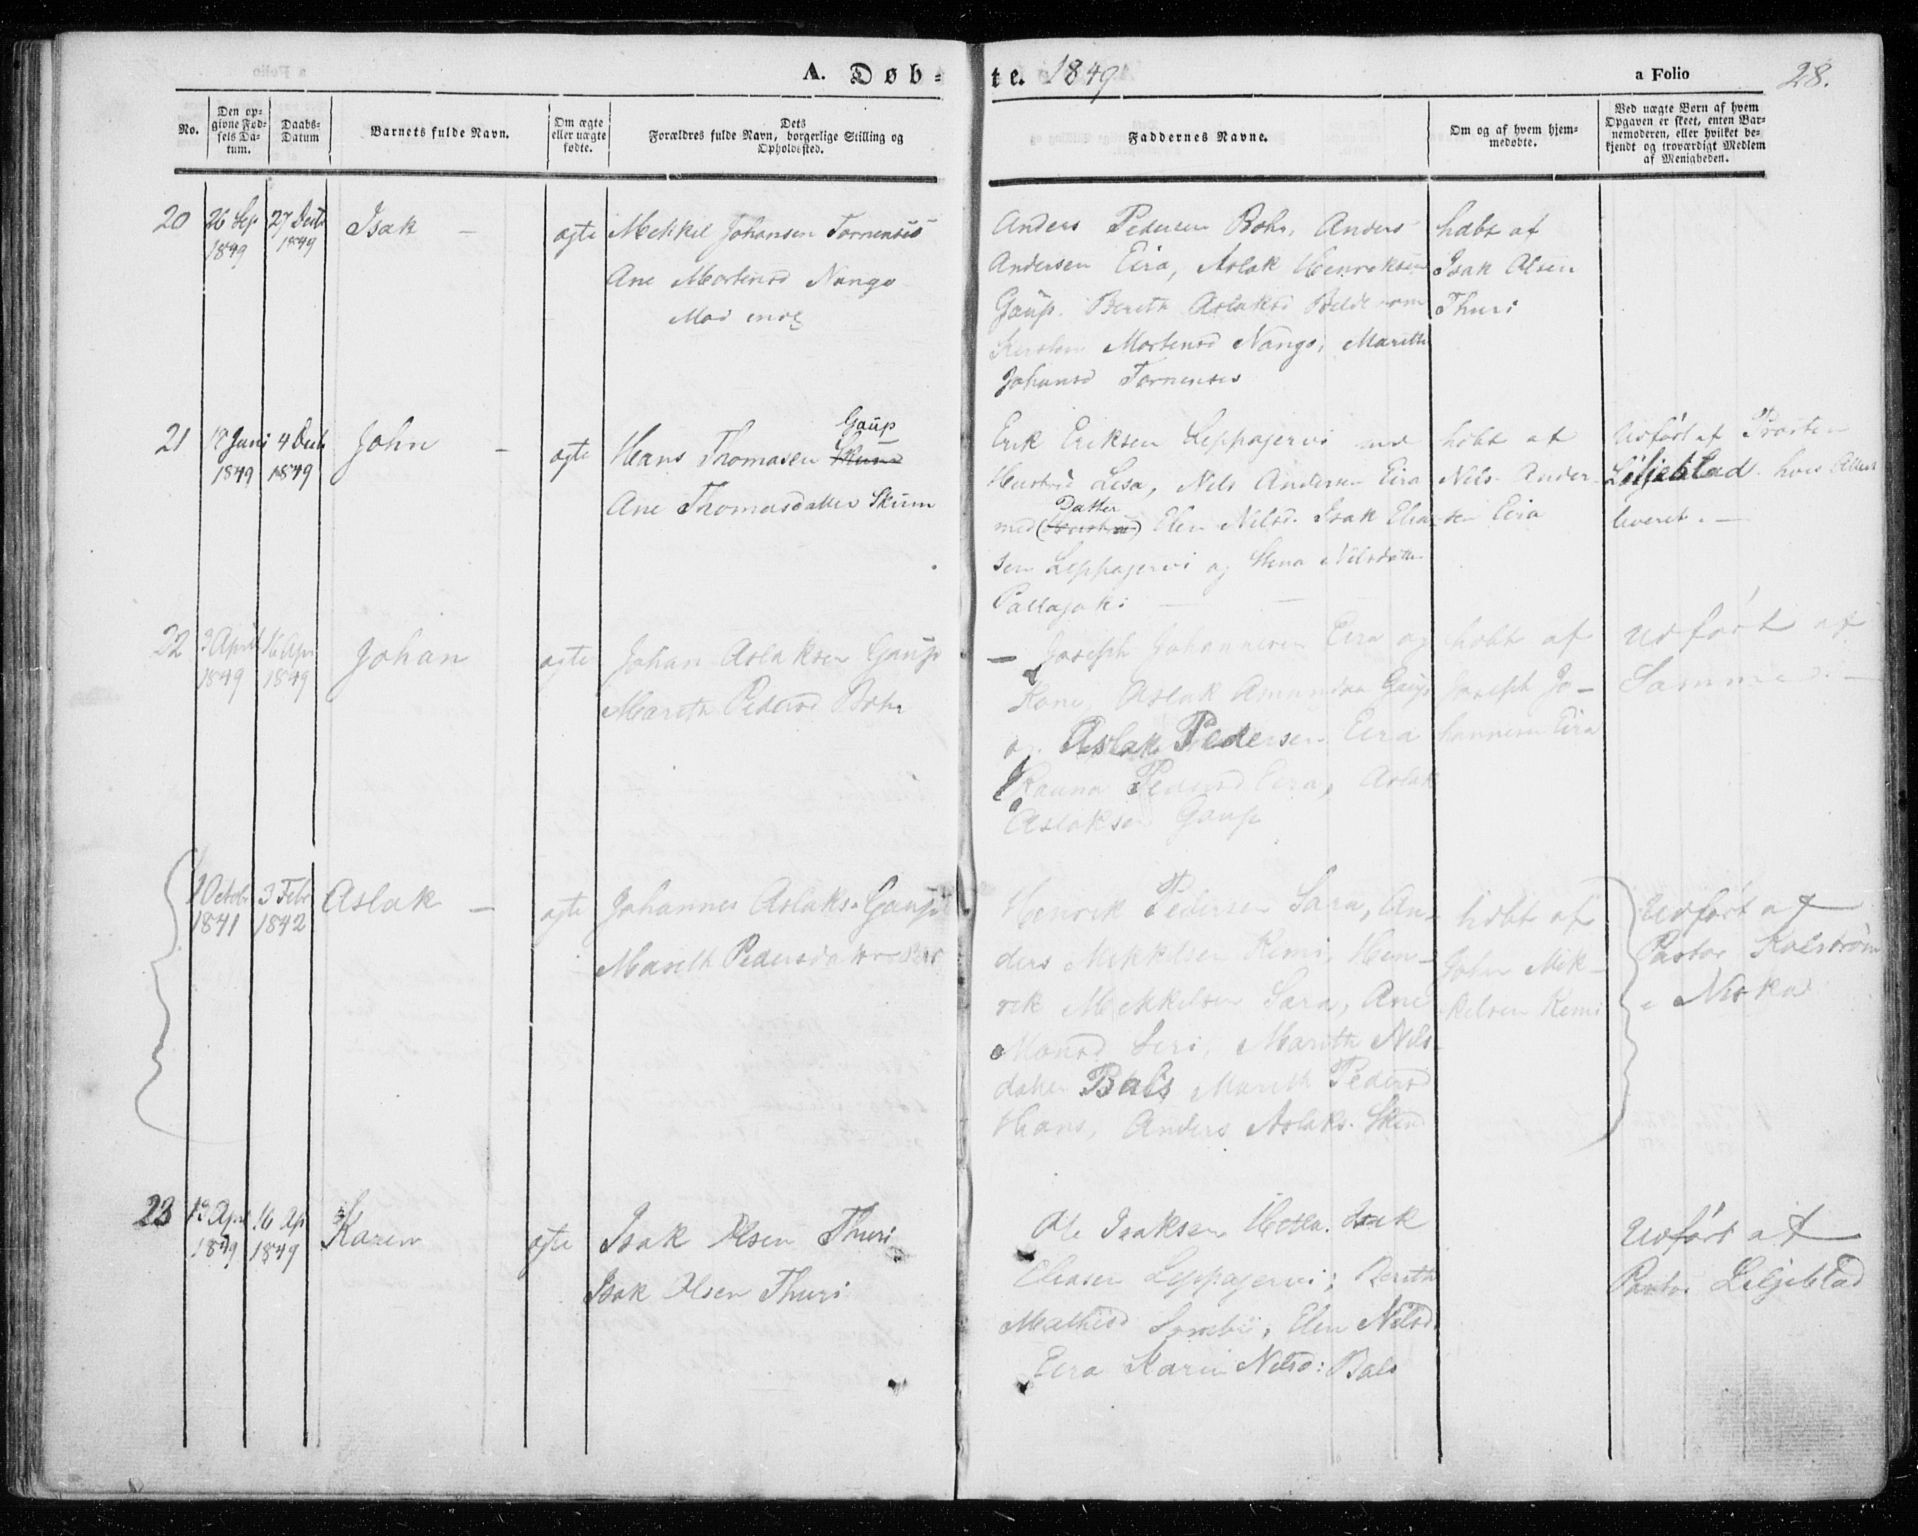 A. Døb-
te. 1849
a Folio
28.
No.
Den op-
givne Fød-
sels Da-
tum.
Daabs-
Datum
Barnets fulde Navn.
Om ægte
eller uægte
fødte.
Dets
Forældres fulde Navn, borgerlige Stilling og
Opholdssted.
Faddernes Navne.
Om og af hvem hjem-
medøbte.
Ved uægte Børn af hvem
Opgaven er skeet, enten Bar-
nemoderen, eller hvilket be-
kjendt og troværdigt Medlem
af Menigheden.
20
26 Sep
1849
27 Decbr
1849
Isak
ægte
Mekkel Johansen Tornensis
Ane Mortensd Nango
Anders Pedersen Bohr, Anders
Andersen Eira, Aslak Henriksen
Gaup. Bereth Aslaksd
Mortensd Nango, Mareth
Johansd Tornensis
høbt af
Isak Olsen
Thuri
21
18 Juni
1849
4 Decb
1849
John
ægte
Hans Thomasen Skum
Gaup
Ane Thomasdatter Skum
Erik Eriksen Leppajervi med
Hustrue Lisa, Nils Andersen Eira
med (Hustrue) Elen Nilsd. Isak Elia
Datter
sen Leppajervi og Stina Nilsdatter
Pallajoki
høbt af
Nils Ander-
sen Eira
Udført af Prosten
Liljeblad. hvis Attest
leveret.
22
3 April
1849
16 Apr
1849
Johan
ægte
Johan Aslaksen Gaup
Mareth Pedersd Bohr
Joseph Johannesen Eira og
Kone, Aslak Amundsen Gaup
og Aslak Pedersen Eira
Rauna Pedersd Eira, Aslak
Aslaksen Gaup
høbt af
Joseph Jo-
hannesen Eira
Udført af
Samme.
1 Octobr
1841
3 Febr
1842
Aslak
ægte
Johannes Aslaks. Gaup
Mareth Pedersdatter Bohr
Henrik Pedersen Sara, An-
ders Mikkelsen Kemi, Hen-
rik Mikkelsen Sara, Ane
Monsd Siri, Mareth Nils-
datter Bals, Mareth Pedersd
Hans, Anders Aslaks.
høbt af
John Mik-
kelsen Kemi
Udført af
Pastor Kolström
23
12 Apr
1849
16 Ap
1849
Karen
ægte
Isak Olsen Thuri
Isak Olsen Thuri
Ole Isaksen Hetta. Isak
Eliasen Leppajervi; Bereth
Mathisd Sombi; Elen Nilsd.
Eira Karen Nilsd: Bals
Udført af
Pastor Liljeblad